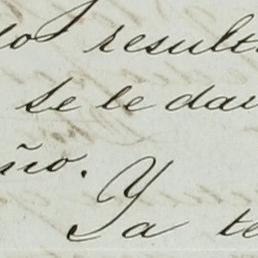 do result
se le dar
ño.
Ya te